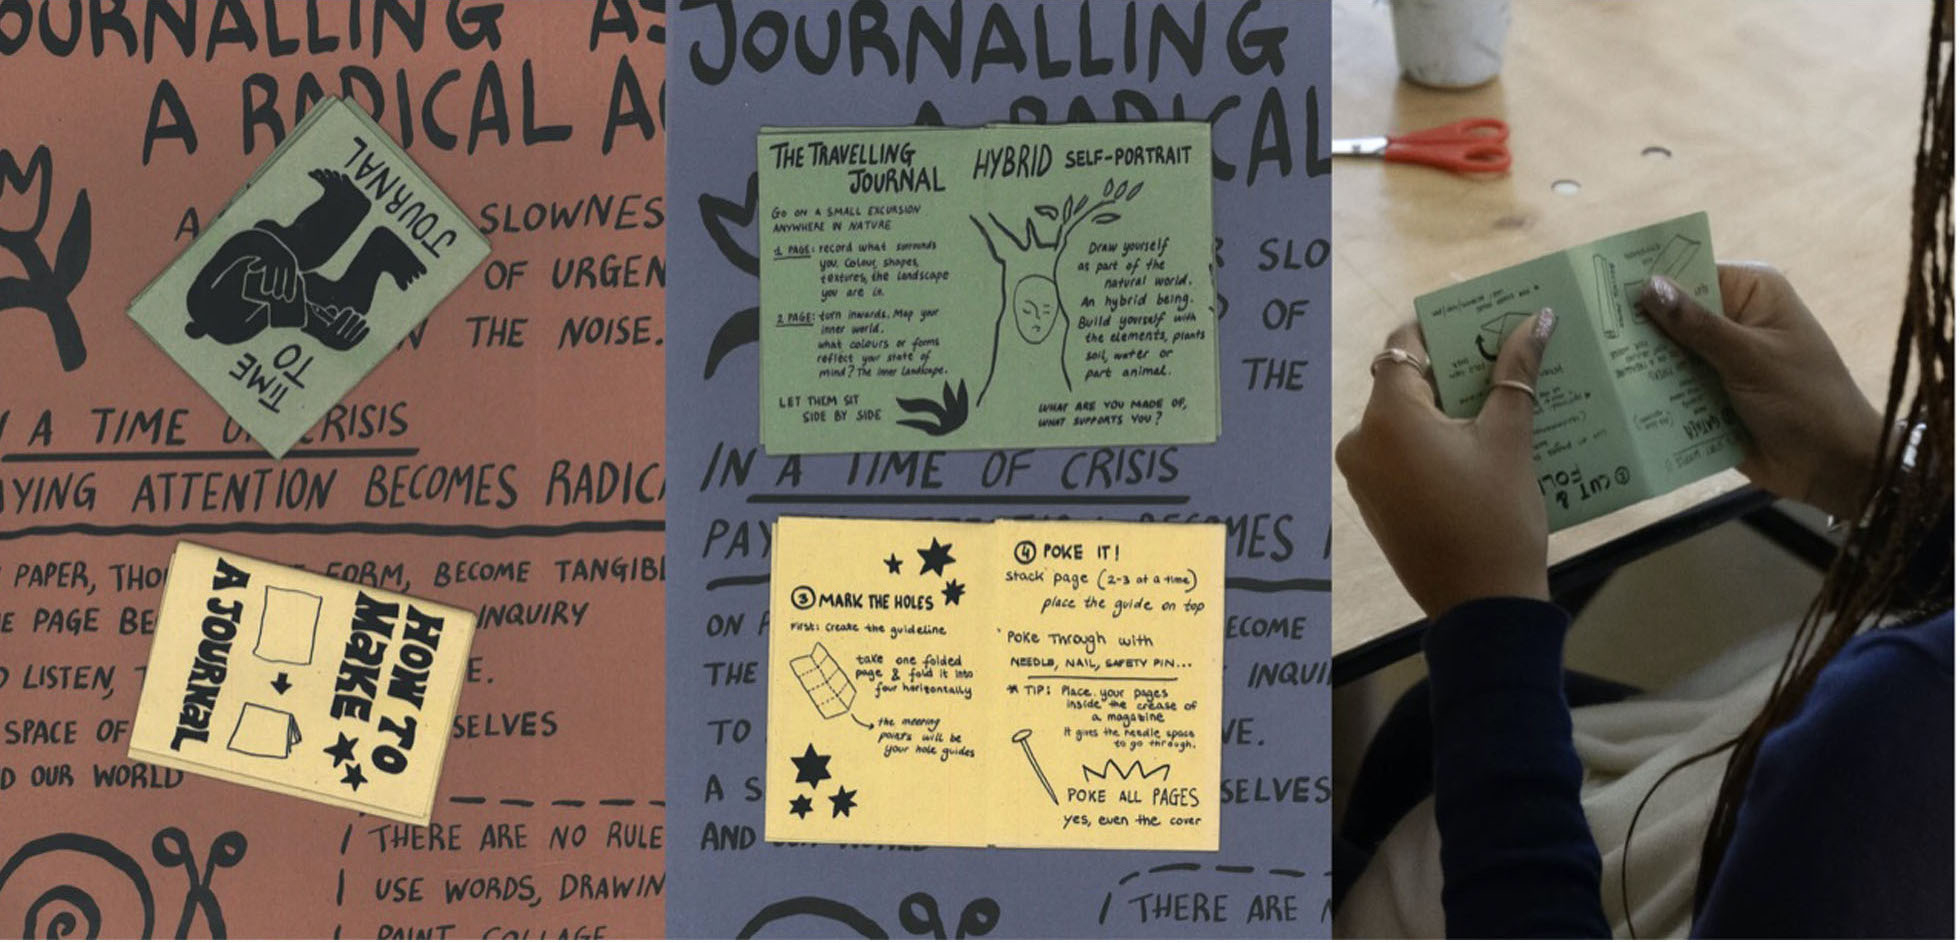 OURNALLING AS
A RADICAL A
SLOWNES
OF URGEN
THE NOISE.
A TIME OF CRISIS
YING ATTENTION BECOMES RADIC
PAPER, THO FORM, BECOME TANGIBL
E PAGE BE INQUIRY
LISTEN, E.
SPACE OF SELVES
D OUR WORLD
THERE ARE NO RULE
USE WORDS, DRAWIN
PAINT, COLLAGE
TIME
TO
JOURNAL
HOW TO
MaKE
A JOURNaL
JOURNALLING
A RADICAL
SLO
OF
THE
IN A TIME OF CRISIS
PAY MES
ON ECOME
THE INQUI
TO VE.
A S SELVES
AND OUR WORLD
THERE ARE
THE TRAVELLING
JOURNAL
GO ON A SMALL EXCURSION
ANYWHERE IN NATURE
1 PAGE: record what surrounds
you. Colour, shapes,
textures, the landscape
you are in.
2 PAGE: turn inwards. Map your
inner world.
what colours or forms
reflect your state of
mind? The inner landscape.
LET THEM SIT
SIDE BY SIDE
HYBRID SELF-PORTRAIT
Draw yourself
as part of the
natural world.
An hybrid being.
Build yourself with
the elements, plants
soil, water or
part animal.
WHAT ARE YOU MADE OF,
WHAT SUPPORTS YOU?
3 MARK THE HOLES
First: Create the guideline
take one folded
page & fold it into
four horizontally
the meeting
points will be
your hole guides
4 POKE IT!
stack page (2-3 at a time)
place the guide on top
Poke Through with
NEEDLE, NAIL, SAFETY PIN...
* TIP: Place your pages
inside the crease of
a magazine
It gives the needle space
to go through.
POKE ALL PAGES
yes, even the cover
GATHER
2 CUT &
FOL